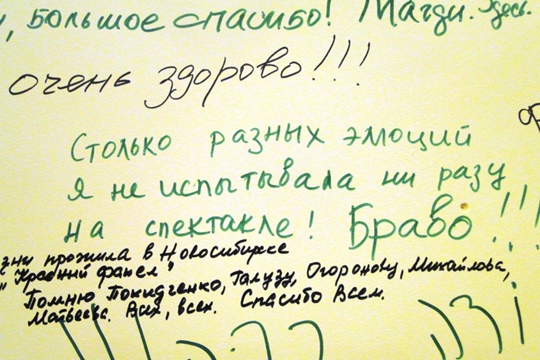 , большое спасибо! Магди. Здесь.
очень здорово!!!
Столько разных эмоций
я не испытывала ни разу
на спектакле! Браво!!!
зни прожила в Новосибирске
"Красный факел"
Помню Покидченко, Галузу, Огоронову, Михайлова,
Матвеева. Всех, всех. Спасибо Всем.